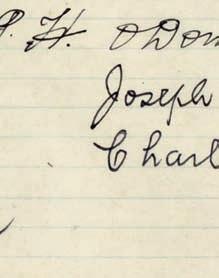 P. H. O'Don
Joseph
Charl